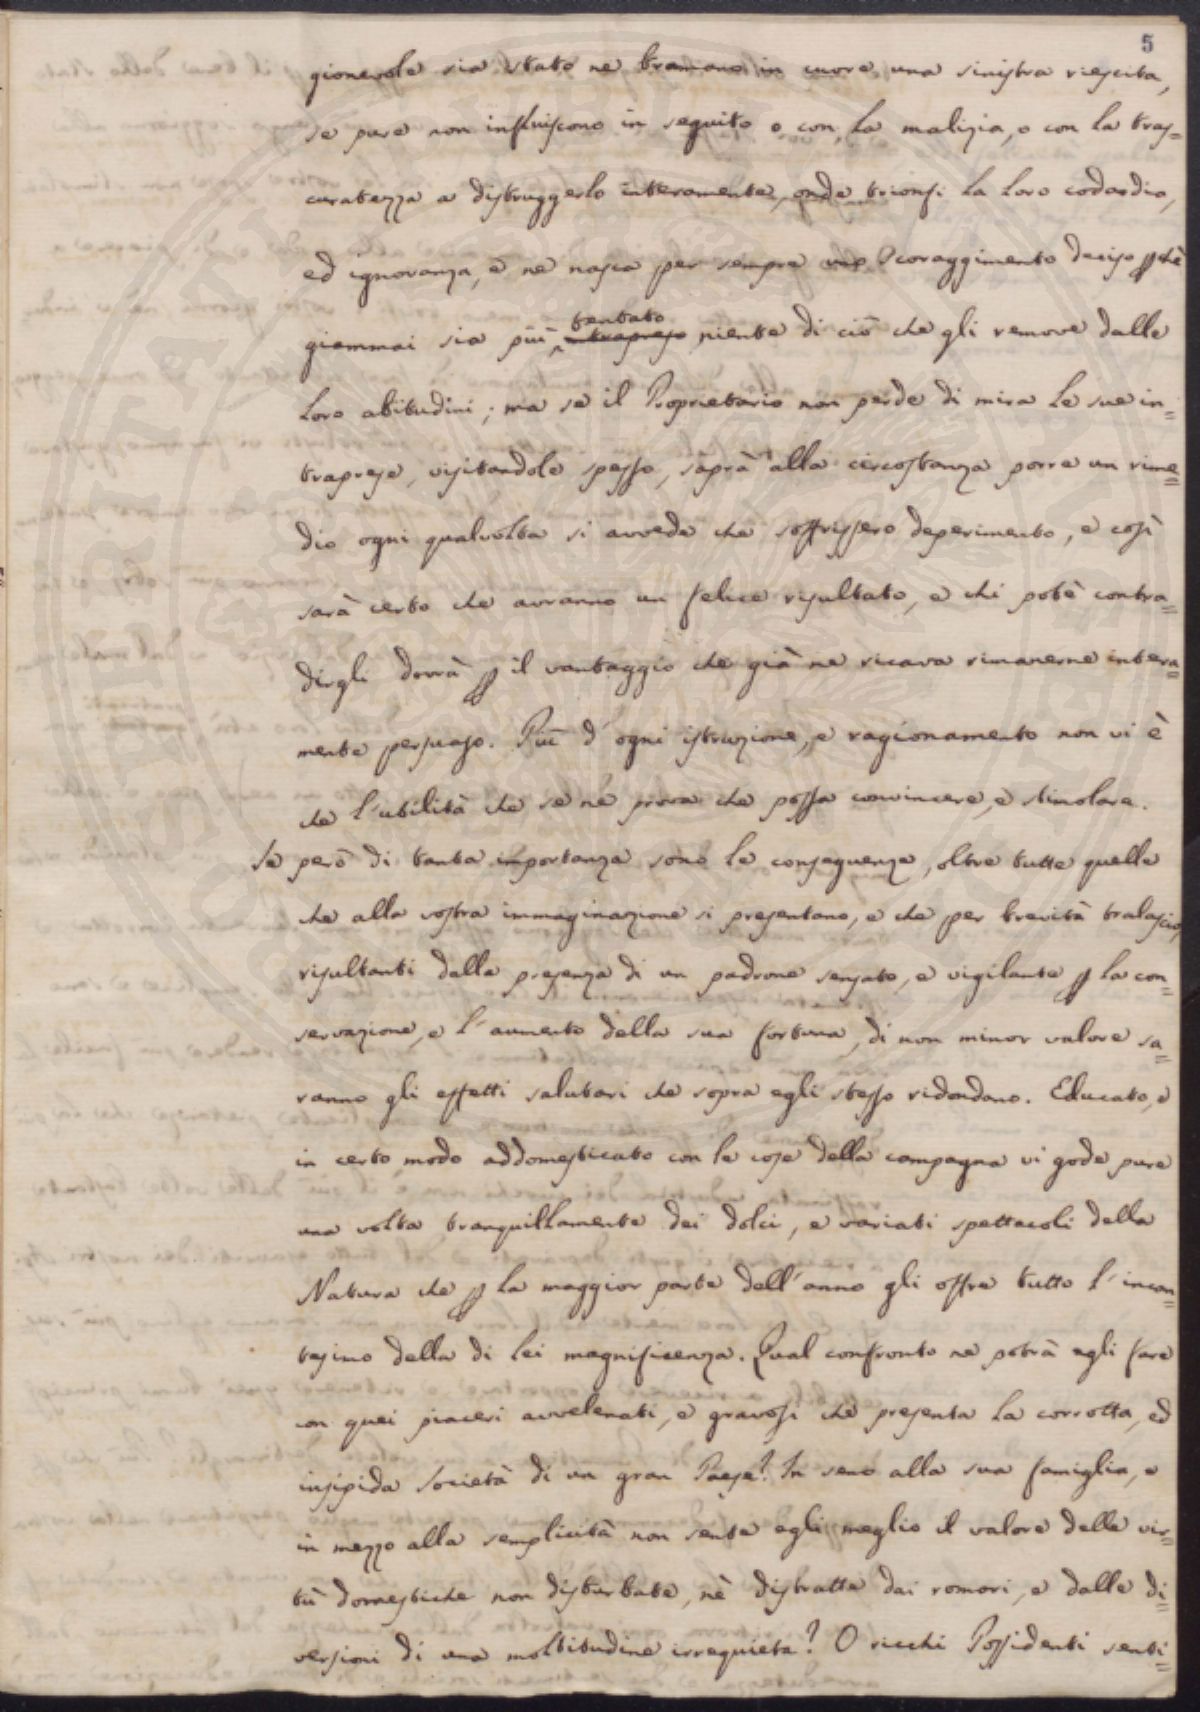 5
gionevole sia stato ne bramano in cuore una sinistra riescita,
se pure non influiscono in seguito o con la malizia, o con la tras=
curatezza a distruggerlo interamente, onde trionfi la loro codardia,
ed ignoranza, e ne nasca per sempre uno scoraggimento deciso pchè
tentato
giammai sia più intrapreso niente di ciò che gli remove dalle
loro abitudini; ma se il Proprietario non perde di mira le sue in=
traprese, visitandole spesso, saprà alla circostanza porre un rime=
dio ogni qualvolta si avvede che soffrissero deperimento, e così
sarà certo che avranno un felice risultato, e chi potè contra=
dirgli dovrà p il vantaggio che già ne ricava rimanerne intera=
mente persuaso. Più d'ogni istruzione, e ragionamento non vi è
che l'utilità che se ne prova che possa convincere, e stimolare.
Se però di tanta importanza sono le conseguenze, oltre tutte quelle
che alla vostra immaginazione si presentano, e che per brevità tralascio,
risultanti dalla presenza di un padrone sensato, e vigilante p la con=
servazione, e l'aumento della sua fortuna, di non minor valore sa=
ranno gli effetti salutari che sopra egli stesso ridondano. Educato, e
in certo modo addomesticato con le cose della campagna vi gode pure
una volta tranquillamente dei dolci, e variati spettacoli della
Natura che p la maggior parte dell'anno gli offre tutto l'incan=
tesimo della di lei magnificenza. Qual confronto ne potrà egli fare
con quei piaceri avvelenati, e gravosi che presenta la corrotta, ed
insipida Società di un gran Paese? In seno alla sua famiglia, e
in mezzo alla semplicità non sente egli meglio il valore delle vir=
tù domestiche non disturbate, nè distratte dai romori, e dalle di=
versioni di una moltitudine irrequieta? O ricchi Possidenti senti=